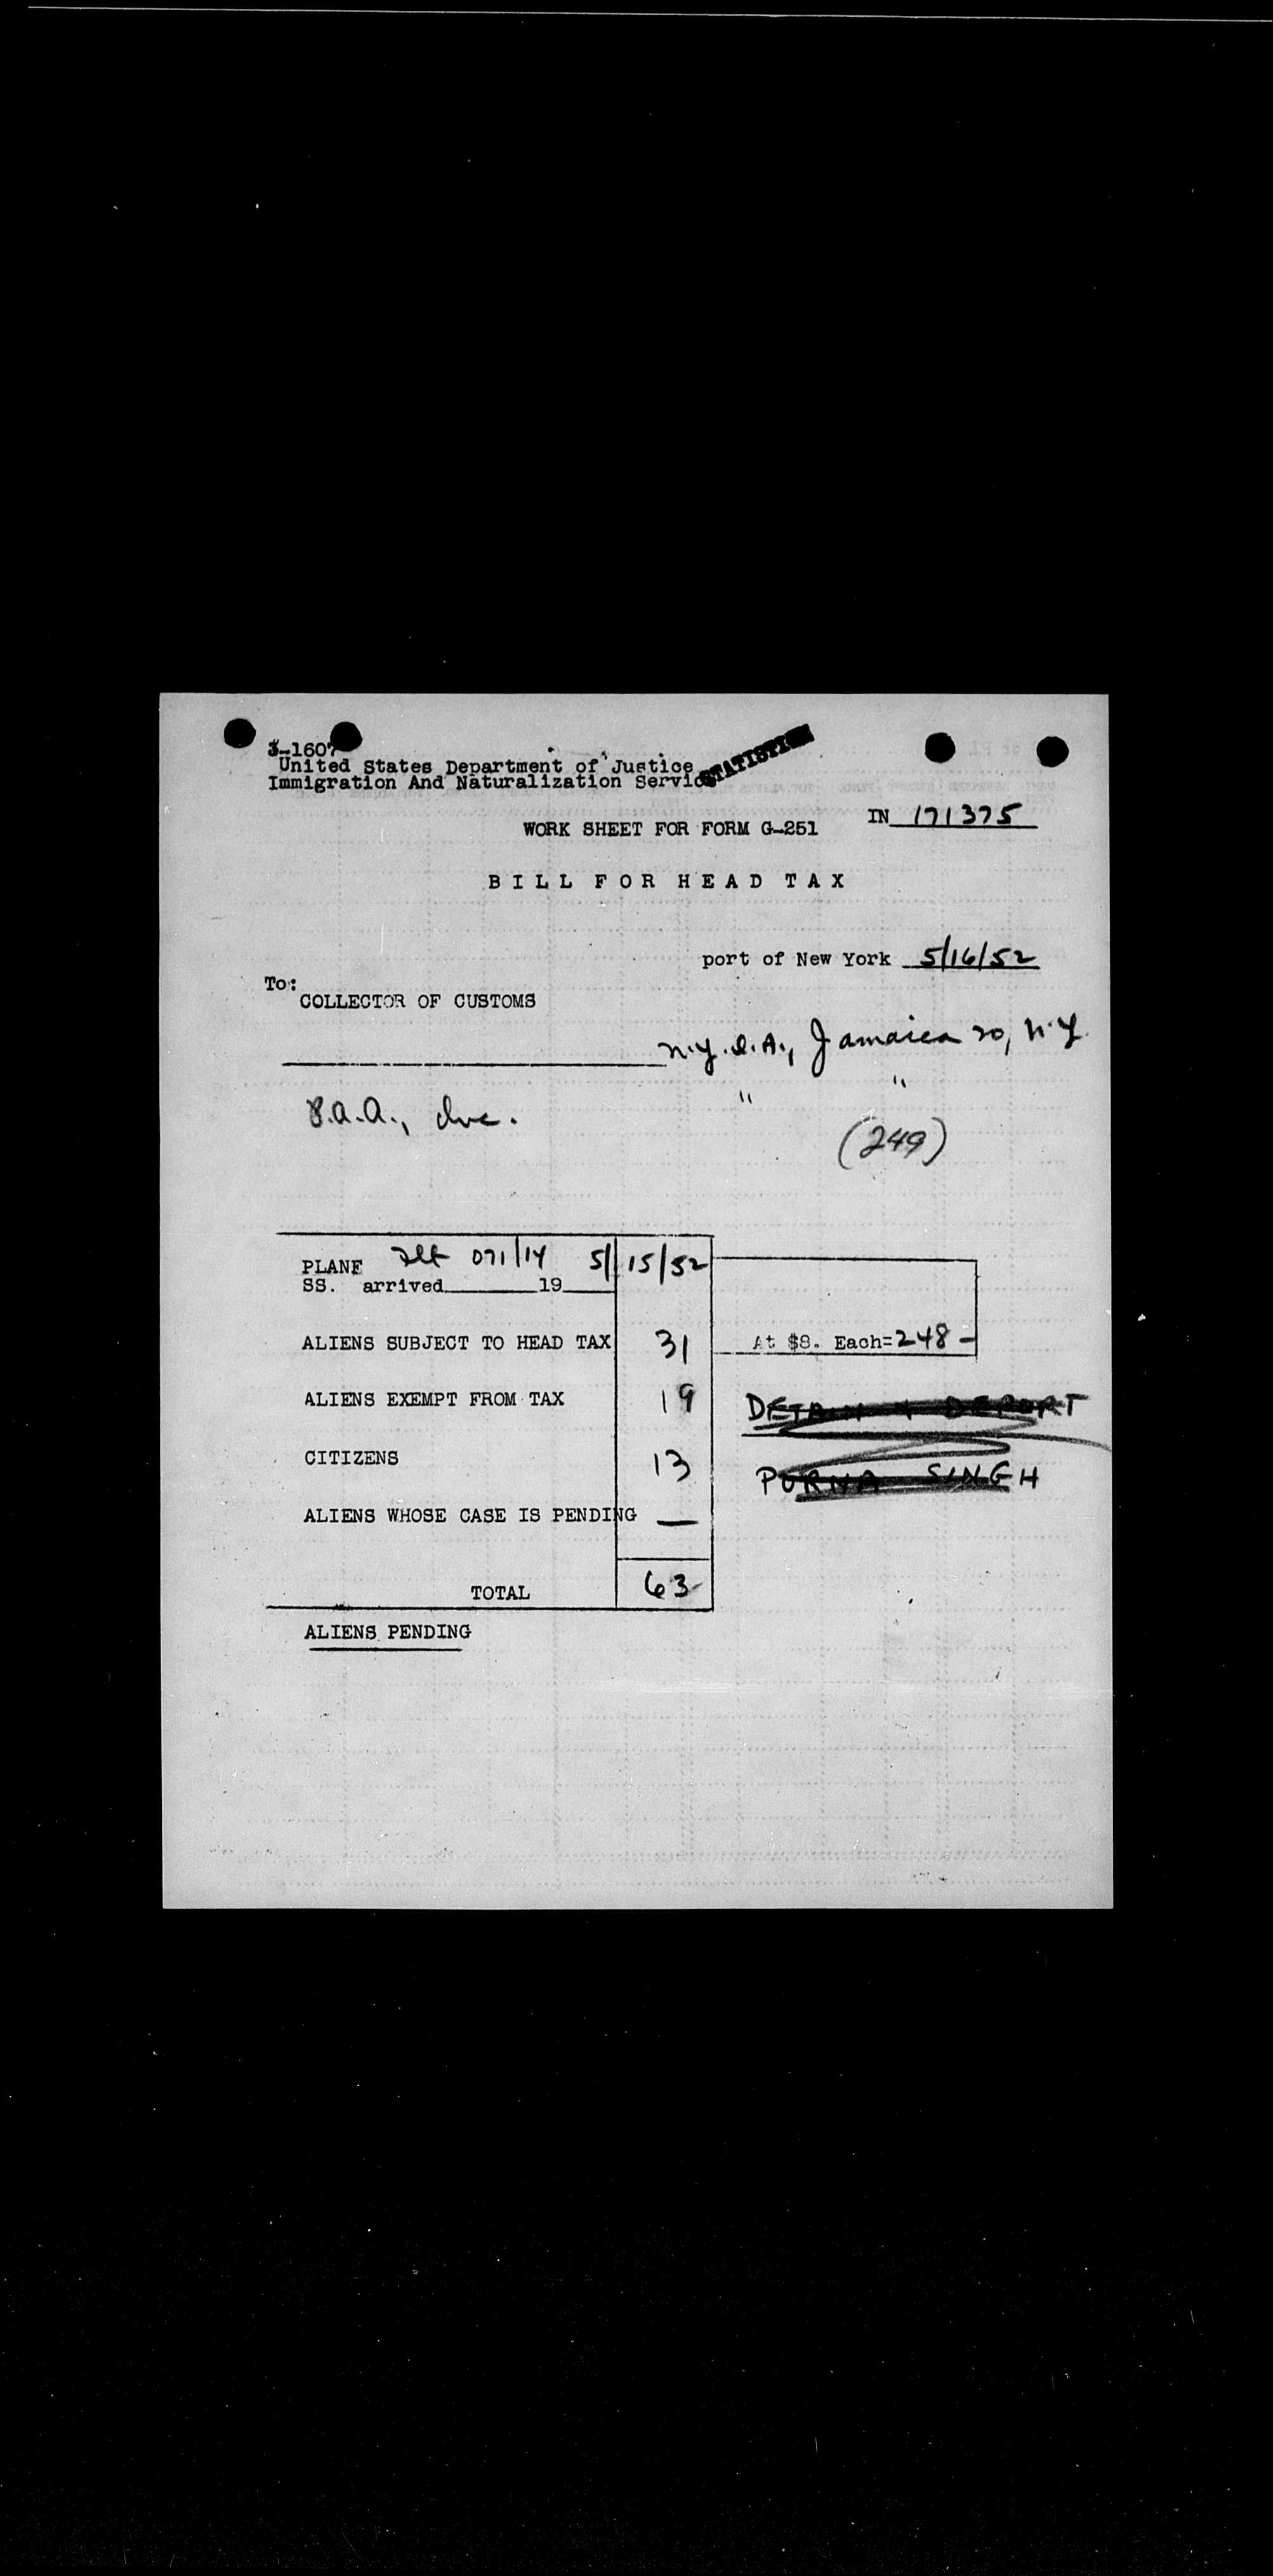 3-1607
United States Department of Justice
Immigration And Naturalization Service
STATISTICS
WORK SHEET FOR FORM G-251
IN 171375
BILL FOR HEAD TAX
port of New York 5/16/52
To:
COLLECTOR OF CUSTOMS
N.Y.I.A., Jamaica 20, N.Y.
" "
P.A.A., Inc.
(249)
PLANE Flt 071/14 5/15/52
SS. arrived 19
ALIENS SUBJECT TO HEAD TAX 31 At $8. Each=248-
ALIENS EXEMPT FROM TAX 19
DETAIN & DEPORT
CITIZENS 13
PURNA SINGH
ALIENS WHOSE CASE IS PENDING —
TOTAL 63
ALIENS PENDING